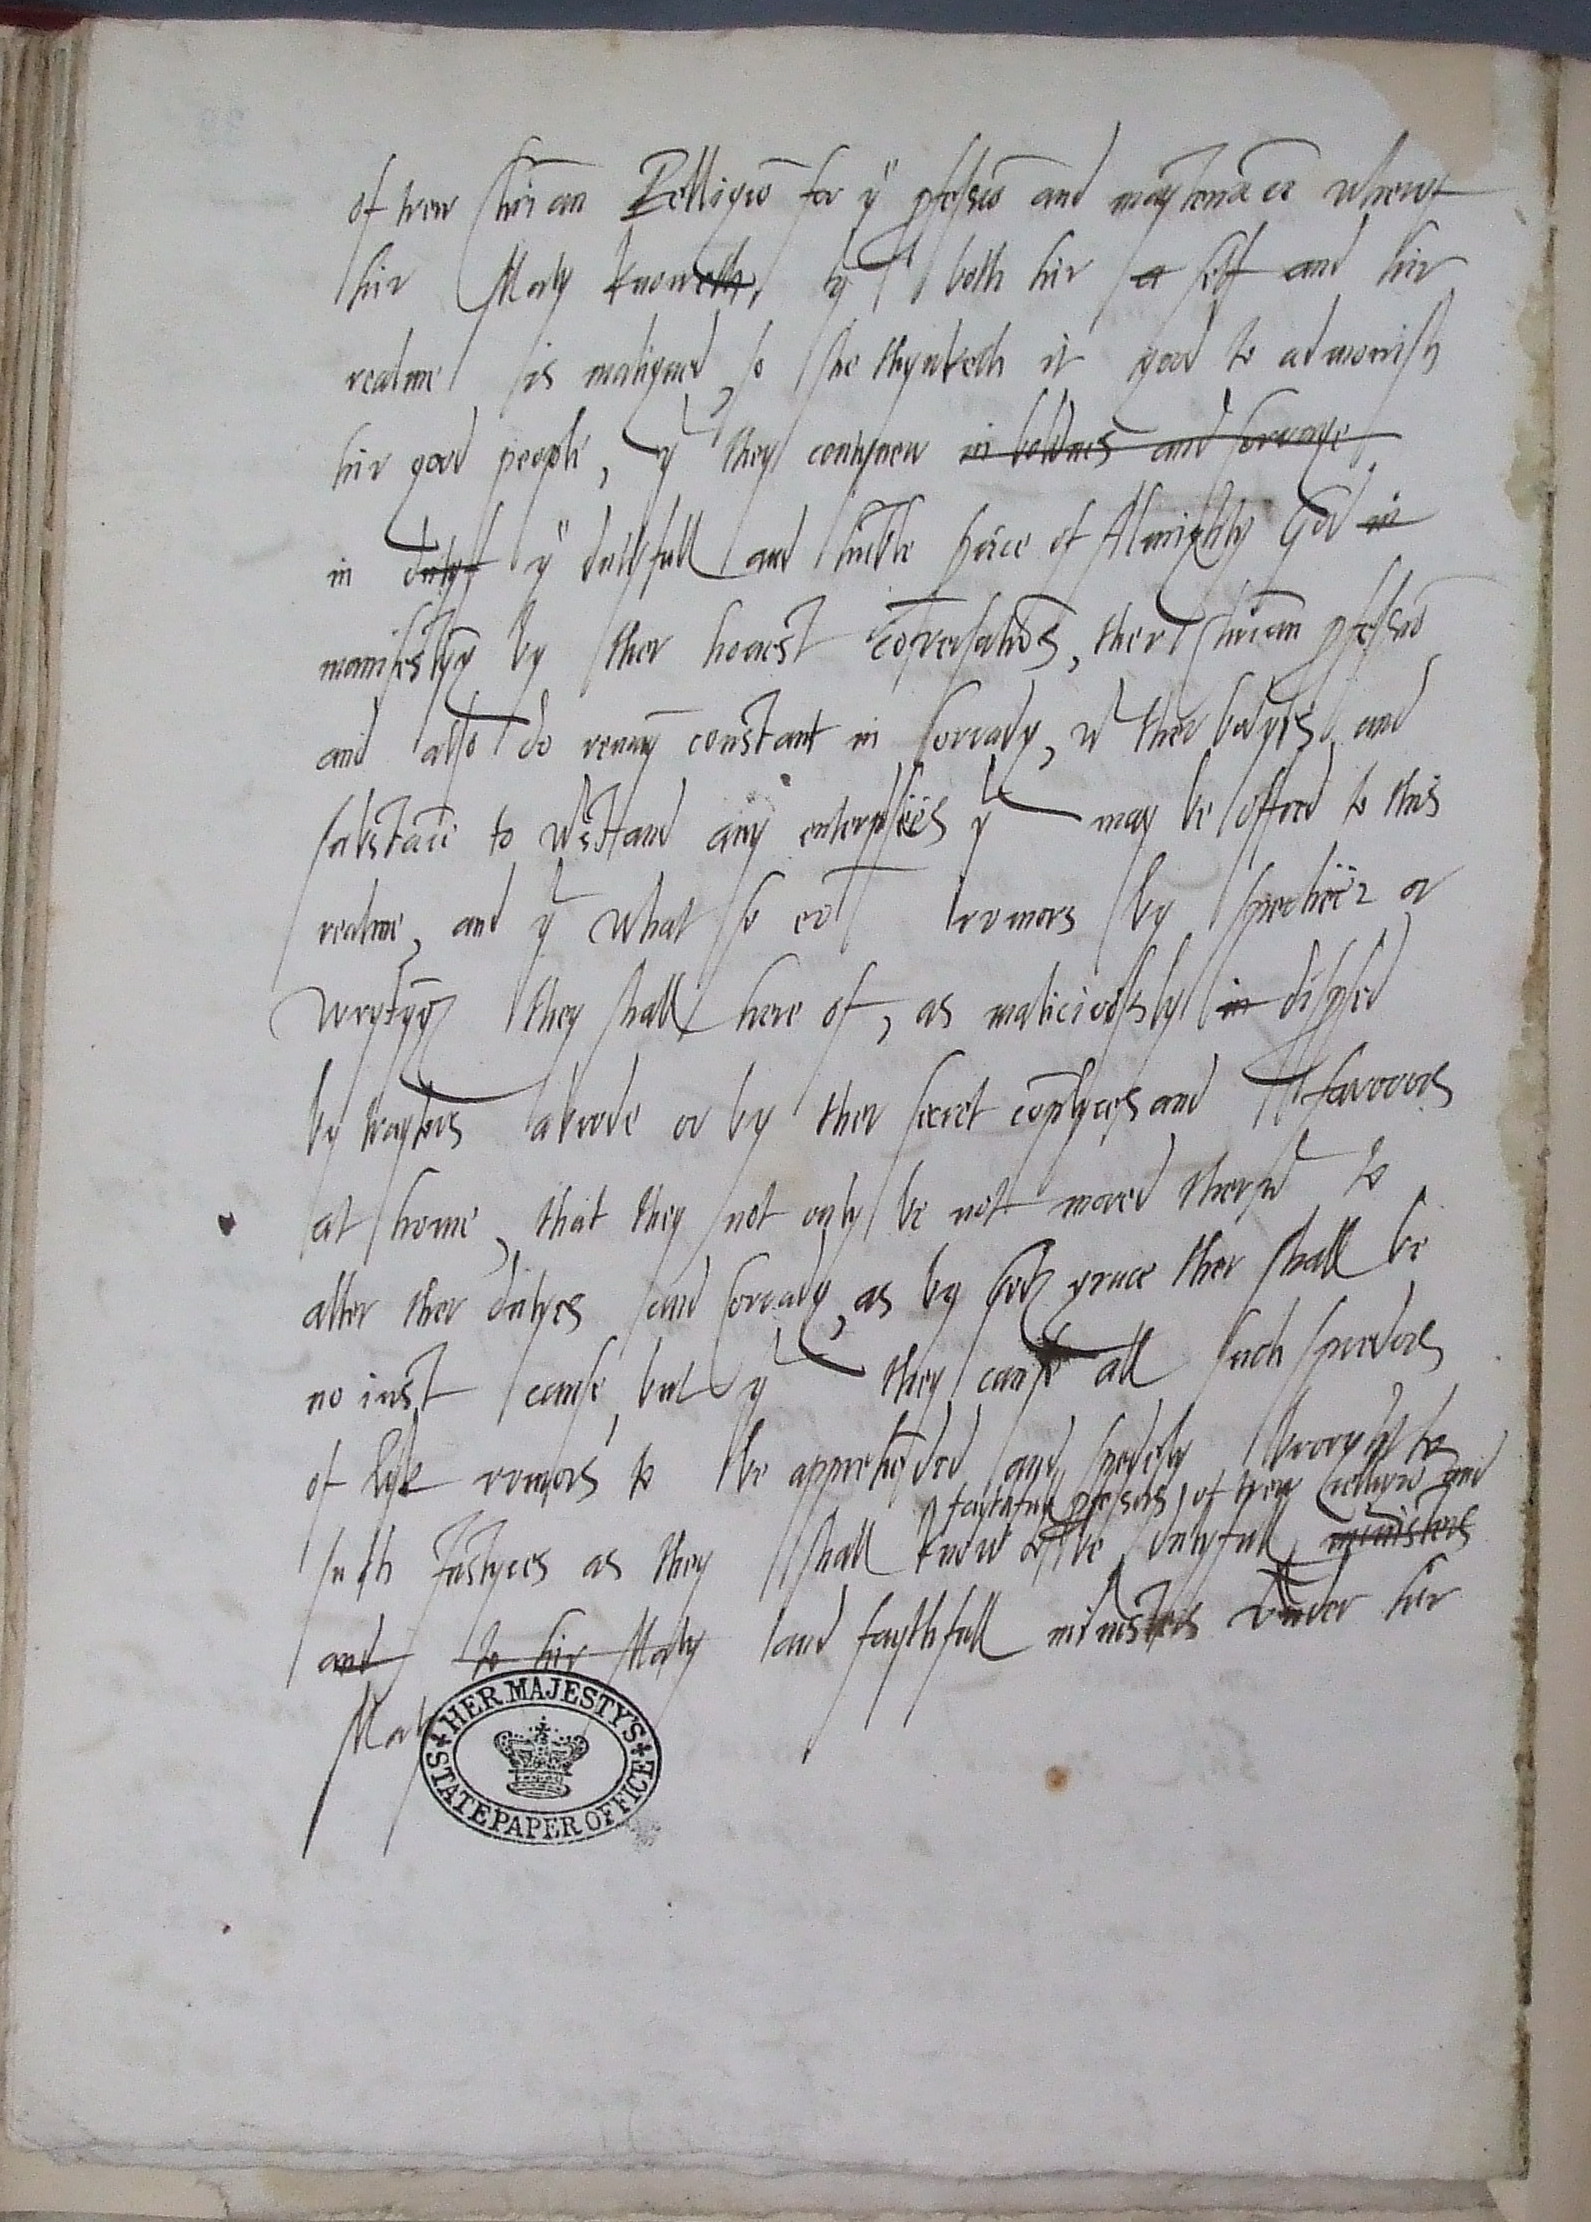 of trew christian Relligiō for yᵉ pfessiō and mayntenāce wherof
hir Maty knoweth, yᵗ both hir a self and hir
realme is maligned, so she thynketh it good to admonish
hir good people, yᵗ they contynew in boldnes and
in duty yᵉ dutifull and humble service of Almighty God in
manifestyng by ther honest cōversatiōs, ther christian pfessiō
and also do remayn constant in, wᵗ ther bodyes and
substāce to wᵗstand any enterprises yᵗ may be offred to this
realme, and yᵗ what so evr rumors by speches or
wrytyng they shall here of, as maliciously in dispsed
by traytors abrode or by ther secret cōplyces and favorors
at home, that they not only be not moved therwᵗ to
alter ther dutyes and, as by Gods grace ther shall be
no iust cause, but yᵗ they cause all such spredors
of lyk rumors to be apprehēded and spedely brought to
faythfull pfessors of trew relligiō and
such Justyces as they shall know to be dutyfull ministers
and to hir Maty and faythfull ministers under hir
Maty
HER MAJESTY'S STATE PAPER OFFICE